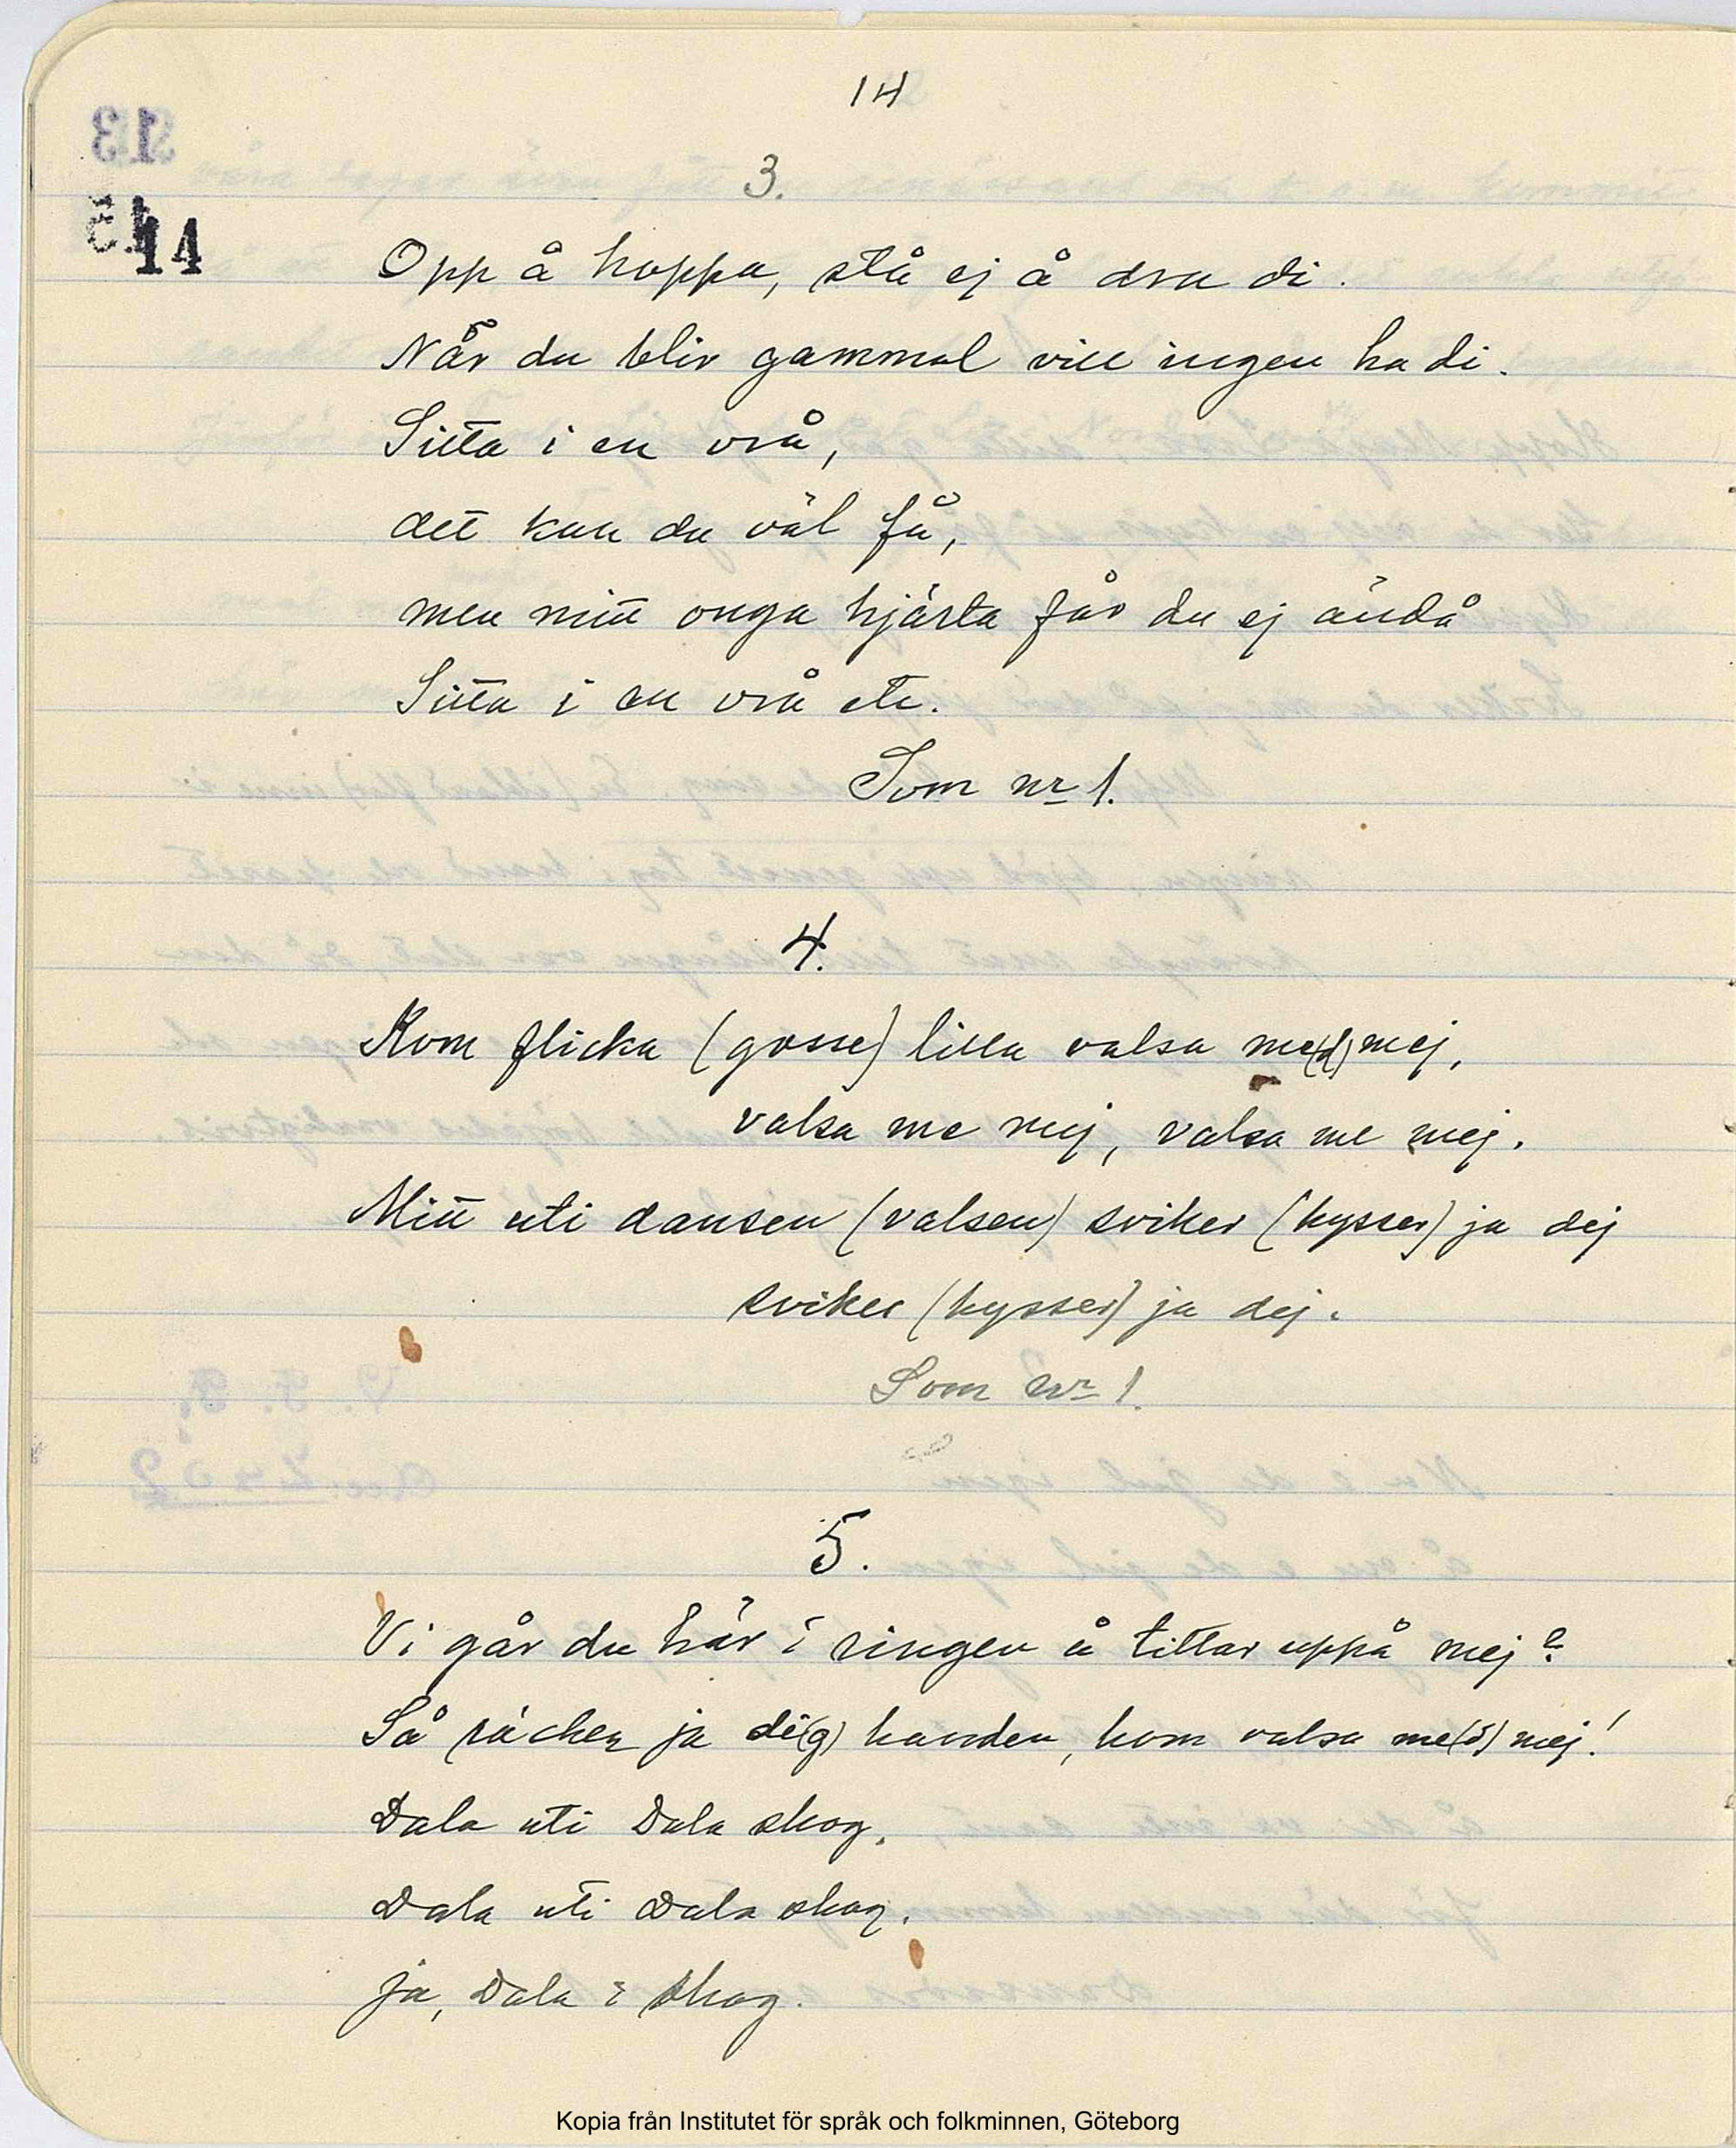 14
3.
14
Opp å hoppa, stå ej å dra di.
När du bliv gammal vill ingen ha di.
Sitta i en vrå,
det kan du väl få,
men mitt onga hjärta får du ej ändå
Sitta i en vrå etc.
Som nr 1.
4.
Kom flicka (gosse) lilla valsa me(d) mej,
valsa me mej, valsa me mej.
Mitt uti dansen (valsen) sviker (kysser) ja dej
sviker (kysser) ja dej.
Som nr 1.
5.
Vi går du här i ringen å tittar uppå mej?
Så räcker ja di(g) handen, kom valsa me(d) mej!
Dala uti Dala skog.
Dala uti Dala skog.
ja, Dala i skog.
Kopia från Institutet för språk och folkminnen, Göteborg